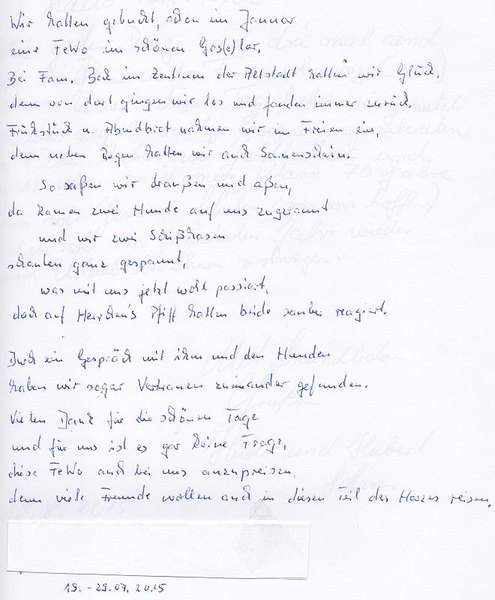 Wir hatten gebucht, schon im Januar
eine FeWo im schönen Gos(s)lar.
Bei Fam. Beck im Zentrum der Altstadt hatten wir Glück,
denn von dort gingen wir los und fanden immer zurück.
Frühstück u. Abendbrot nahmen wir im Freien ein,
denn neben Regen hatten wir auch Sonnenschein.
So saßen wir draußen und aßen,
da kamen zwei Hunde auf uns zugerannt
und wir zwei Schißhasen
schauten ganz gespannt,
was mit uns jetzt wohl passiert,
doch auf Herrchens Pfiff hatten beide sauber reagiert.
Durch ein Gespräch mit ihm und den Hunden
haben wir sogar Vertrauen zueinander gefunden.
Vielen Dank für die schönen Tage
und für uns ist es gar keine Frage,
diese FeWo auch bei uns anzupreisen,
denn viele Freunde wollen auch in diesen Teil des Harzes reisen.
19. - 29.07.2015